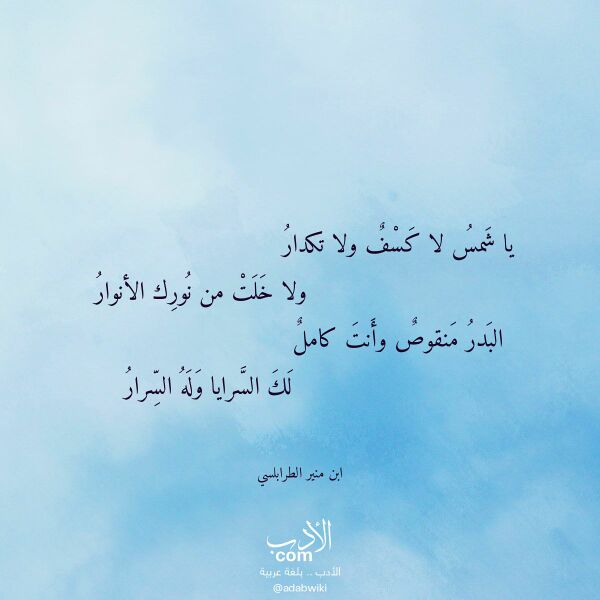 يا شَمسُ لا كَسْفٌ ولا تكدارُ
ولا خَلَتْ من نُورِك الأنوارُ
البَدرُ مَنقوصٌ وأَنتَ كاملٌ
لَكَ السَّرايا وَلَهُ السِّرارُ
ابن منير الطرابلسي
الأدب
com
الأدب .. بلغة عربية
@adabwiki